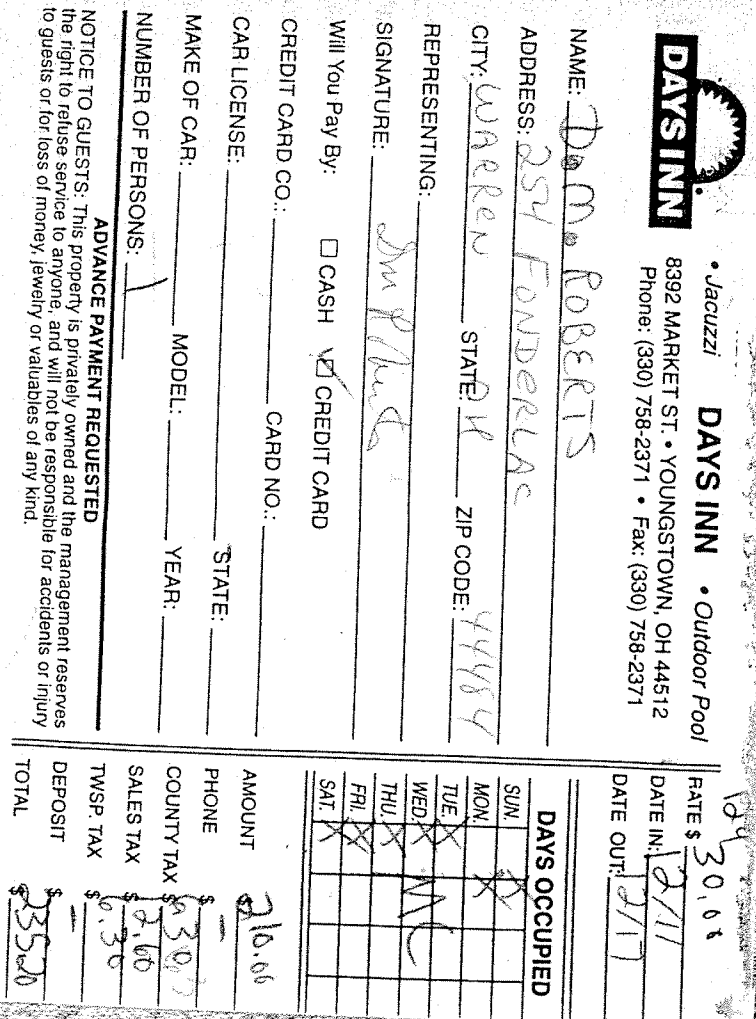 DAYS INN
• Jacuzzi DAYS INN • Outdoor Pool
8392 MARKET ST. • YOUNGSTOWN, OH 44512
Phone: (330) 758-2371 • Fax: (330) 758-2371
NAME: D.M. ROBERTS
ADDRESS: 254 FONDERLAC
CITY: WARREN STATE: OH ZIP CODE: 44484
REPRESENTING:
SIGNATURE:
Will You Pay By: ☐ CASH ☑ CREDIT CARD
CREDIT CARD CO.: CARD NO.:
CAR LICENSE: STATE:
MAKE OF CAR: MODEL: YEAR:
NUMBER OF PERSONS: 1
ADVANCE PAYMENT REQUESTED
NOTICE TO GUESTS: This property is privately owned and the management reserves
the right to refuse service to anyone, and will not be responsible for accidents or injury
to guests or for loss of money, jewelry or valuables of any kind.
124
RATE $ 30.00
DATE IN: 12/11
DATE OUT: 12/17
DAYS OCCUPIED
SUN. X
MON. X
TUE. X
WED. X MC
THU. X
FRI. X
SAT. X
AMOUNT $ 210.00
PHONE $ —
COUNTY TAX $ 6.30
SALES TAX $ 12.60
TWSP. TAX $ 6.30
DEPOSIT $ —
TOTAL $ 235.20